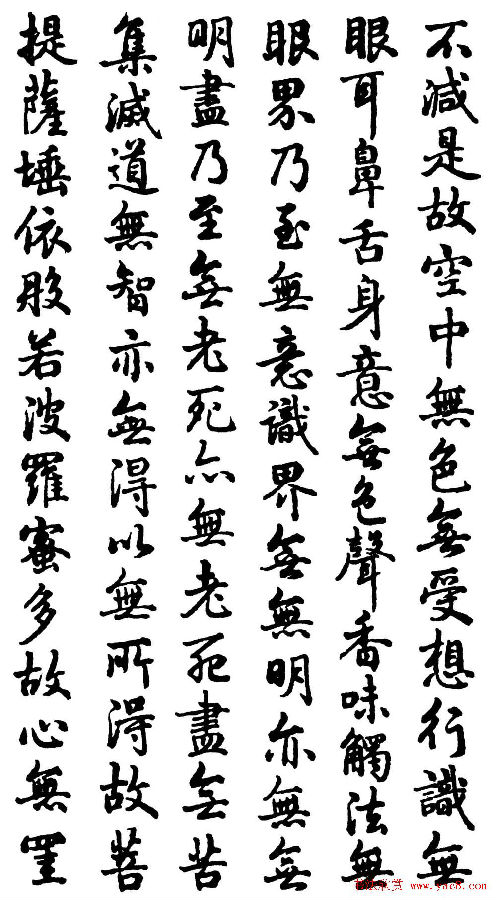 不減是故空中無色無受想行識無
眼耳鼻舌身意無色聲香味觸法無
眼界乃至無意識界無無明亦無無
明盡乃至無老死亦無老死盡無苦
集滅道無智亦無得以無所得故菩
提薩埵依般若波羅蜜多故心無罣
www.yac8.com